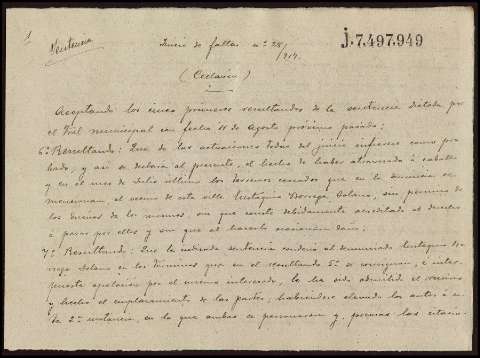 1
Sentencia
j.7.497.949
Juicio de faltas nº 28/
914.
(Ceclavín)
Aceptando los cinco primeros resultandos de la sentencia dictada por
el Tral municipal con fecha 11 de Agosto próximo pasado;
6º Resultando: Que de las actuaciones todas del juicio infierese como pro-
bado, y así se declara al presente, el hecho de haber atravesado á caballo
y en el mes de Julio último los terrenos cercados que en la denuncia se
mencionan, el vecino de esta villa Eustaquio Borrega Solano, sin permiso de
los dueños de los mismos, sin que conste debidamente acreditado el derecho
á pasar por ellos y sin que al hacerlo ocasionara daño;
7º Resultando: Que la indicada sentencia condena al denunciado Eustaquio Bo-
rrega Solano en los términos que en el resultando 5º se consignan, é inter-
puesta apelación por el mismo interesado, le ha sido admitida el recurso
y hecho el emplazamiento de las partes, habiéndose elevado los autos á es-
ta 2ª instancia, en la que ambas se personaron y, previas las citacio-